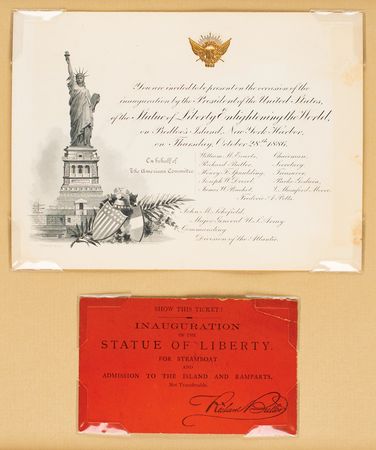 You are invited to be present on the occasion of the
inauguration by the President of the United States,
of the Statue of Liberty Enlightening the World,
on Bedloe's Island, New York Harbor,
on Thursday, October 28th 1886.
On behalf of
The American Committee
William M. Evarts, Chairman.
Richard Butler, Secretary.
Henry F. Spaulding, Treasurer.
Joseph W. Drexel, Parke Godwin,
James W. Pinchot, V. Mumford Moore
Frederic A. Potts.
John M. Schofield,
Major General U.S. Army
Commanding
Division of the Atlantic.
SHOW THIS TICKET!
INAUGURATION
OF THE
STATUE OF LIBERTY.
FOR STEAMBOAT
AND
ADMISSION TO THE ISLAND AND RAMPARTS.
Not Transferable.
Richard Butler